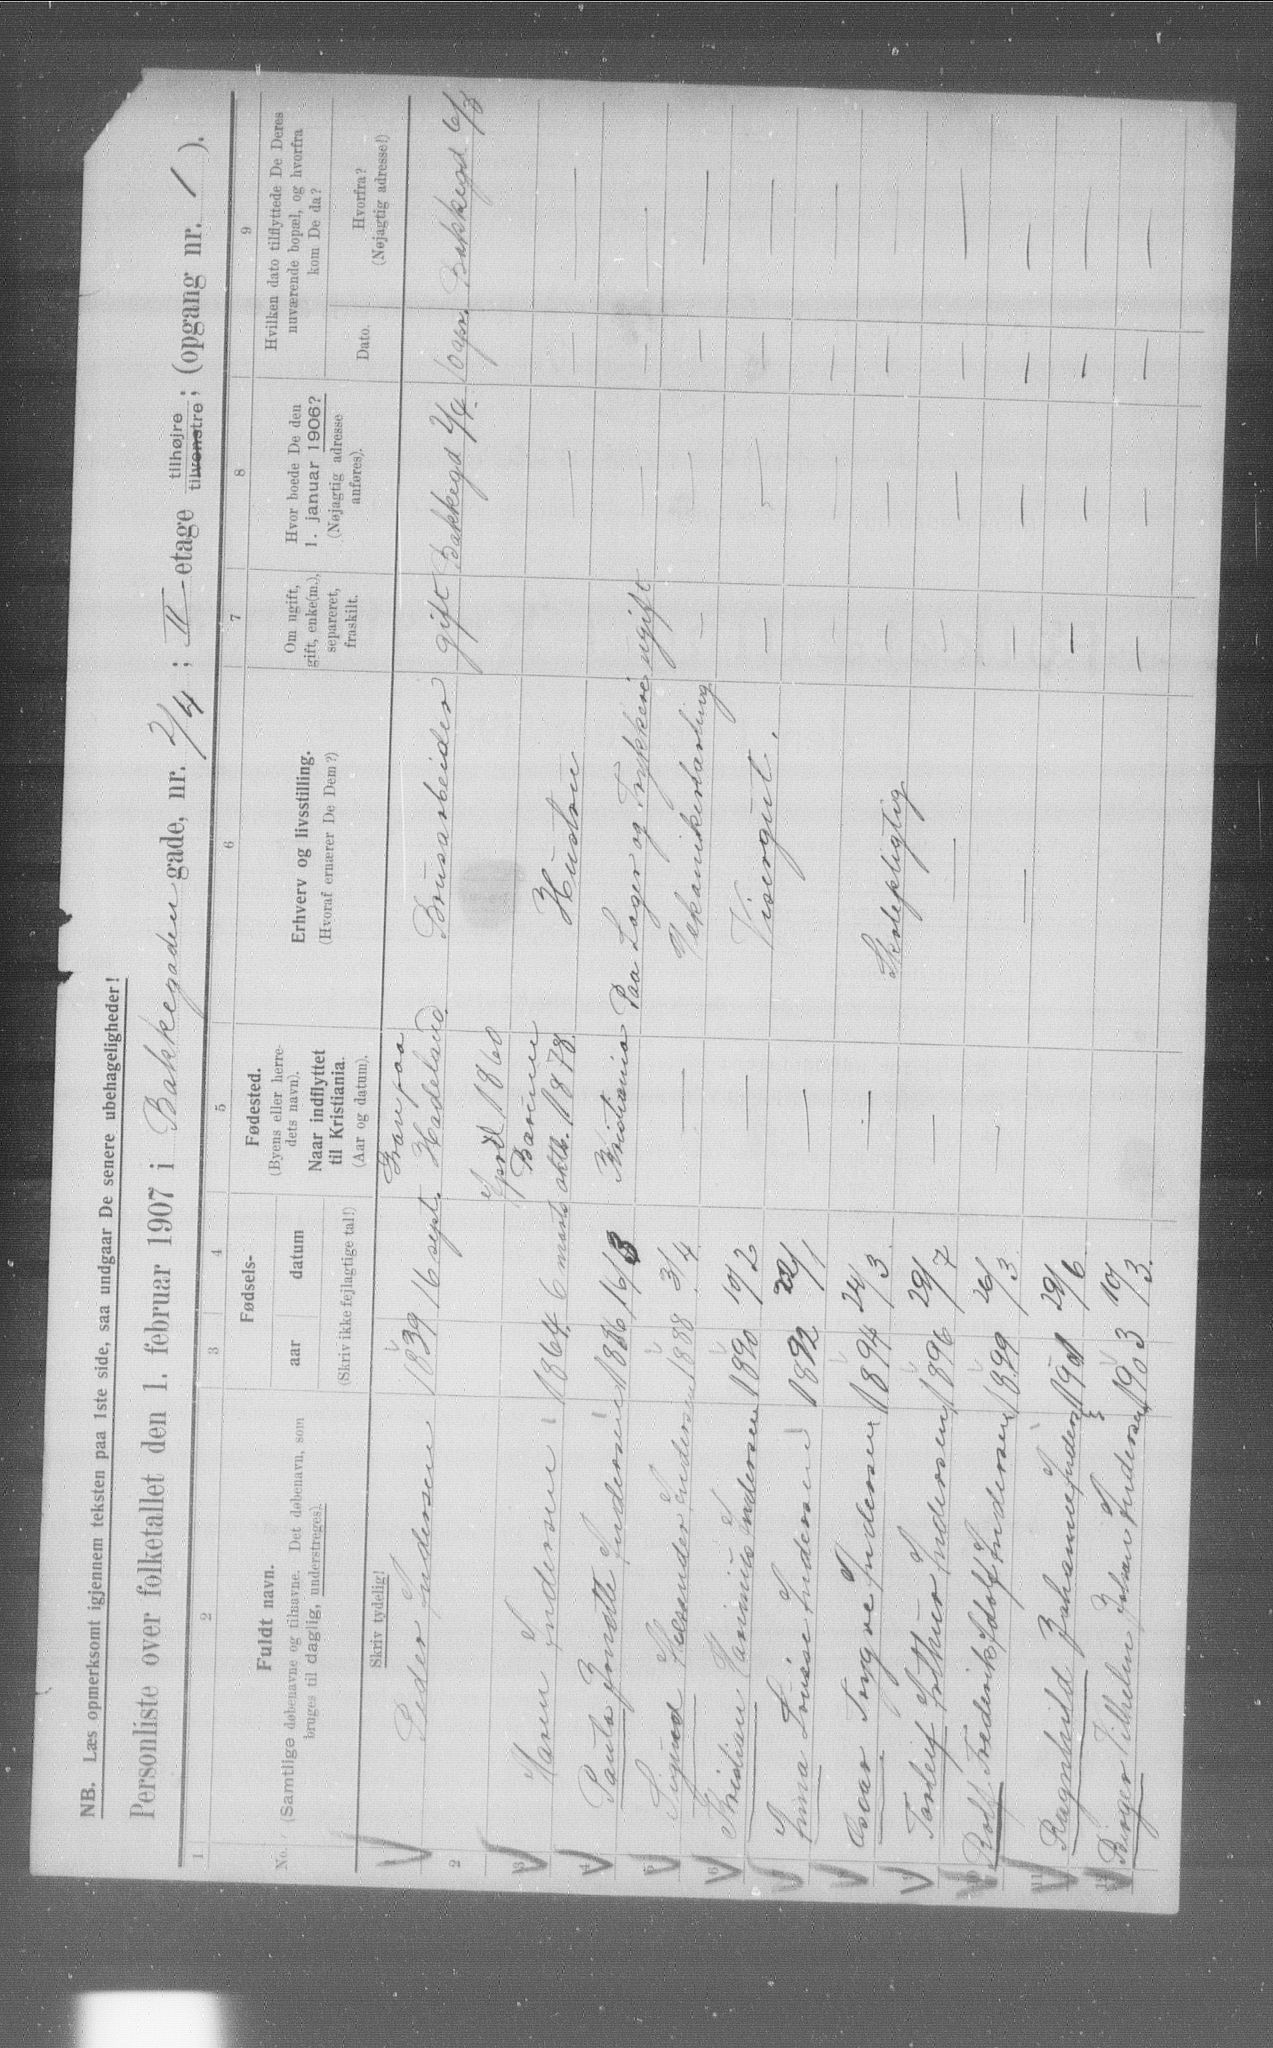 NB. Læs opmerksomt igjennem teksten paa 1ste side, saa undgaar De senere ubehageligheder!
Personliste over folketallet den 1. februar 1907 i Bakkegaden gade, nr. 2/4 ; II etage tilhøjre tilvenstre; (opgang nr. 1 ).
1 2 3 4 5 6 7 8 9
No. Fuldt navn. (Samtlige døbenavne og tilnavne. Det døbenavn, som bruges til daglig, understreges).
Fødsels- aar datum
(Skriv ikke fejlagtige tal!)
Fødested. (Byens eller herredets navn). Naar indflyttet til Kristiania. (Aar og datum).
Erhverv og livsstilling. (Hvoraf ernærer De Dem?)
Om ugift, gift, enke(m.), separeret, fraskilt.
Hvor boede De den 1. januar 1906? (Nøjagtig adresse anføres).
Hvilken dato tilflyttede De Deres nuværende bopæl, og hvorfra kom De da?
Dato. Hvorfra? (Nøjagtig adresse!)
Skriv tydelig!
Peder Andersen 1839 16 sept. Gran paa Hadeland. Brusarbeider gift Bakkegd 2/4. Bakkegd 6/8
2 April 1860
3 Maren Andersen 1864 6 marts Bærum oktb. 1878. Hustru — — — —
4 Paula Andersen 1886 16/3 Kristiania Paa Lager og Trykkeri ugift — — —
5 Sigurd Alexander Andersen 1888 3/4 — — — — —
6 Kristian Andersen 1890 10/2 — Visergut. — — — —
Anna Lovise Andersen 1892 22/1 — — — — —
Oscar Yngve Andersen 1894 24/3 — Skolepligtig — — — —
Torleif Arthur Andersen 1896 29/7 — — — — — —
Rolf Frederik Adolf Andersen 1899 26/3 — — — — —
11 Ragnhild Johanne Andersen 1901 29/6 — — — —
12 Birger Vilhelm Johan Andersen 1903 10/3. — — — —